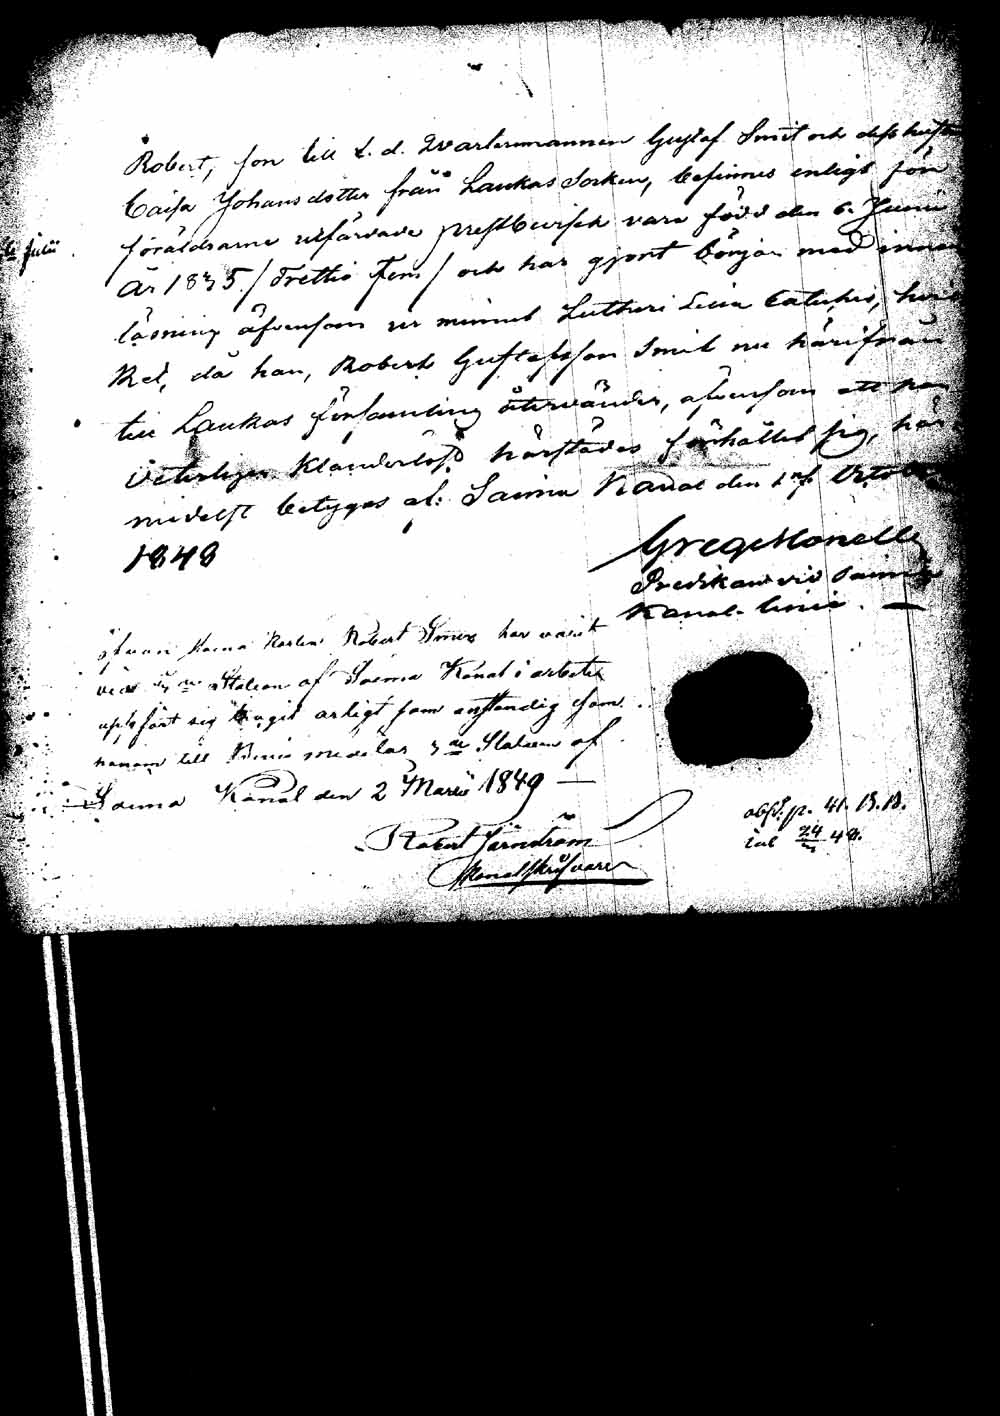 Robert, son till f. d. Qvartermannen Gustaf Smit och dess hustru
Caisa Johansdotter från Laukas Socken, befinnes enligt för
föräldrarne utfärdade prestbevisel vara född den 6. Junii
6 Julii
År 1835. / Trettio Fem / och har gjort början med innan
läsning äfvensom ur minnet Lutheri Lilla Cateches, hvil
ket, då han, Robert Gustafsson Smit nu härifrån
till Laukas församling återvänder, äfvensom att han
veterligen klanderlöst härstädes förhållit sig, här
medelst betygas af: Saima Kanal den 1 Octob
1848
Greg Monell
Predikant vid Saima
Kanal-linie.
Robert Smit har varit
vid Station af Saima Kanal i arbete
uppfört sig ärligt som anständig som
honom till Bevis medelas Station af
Saima Kanal den 2 Martii 1849
Robert Järnström
Kanalskrifvare
abs: p. 41. B.B.
24 48.